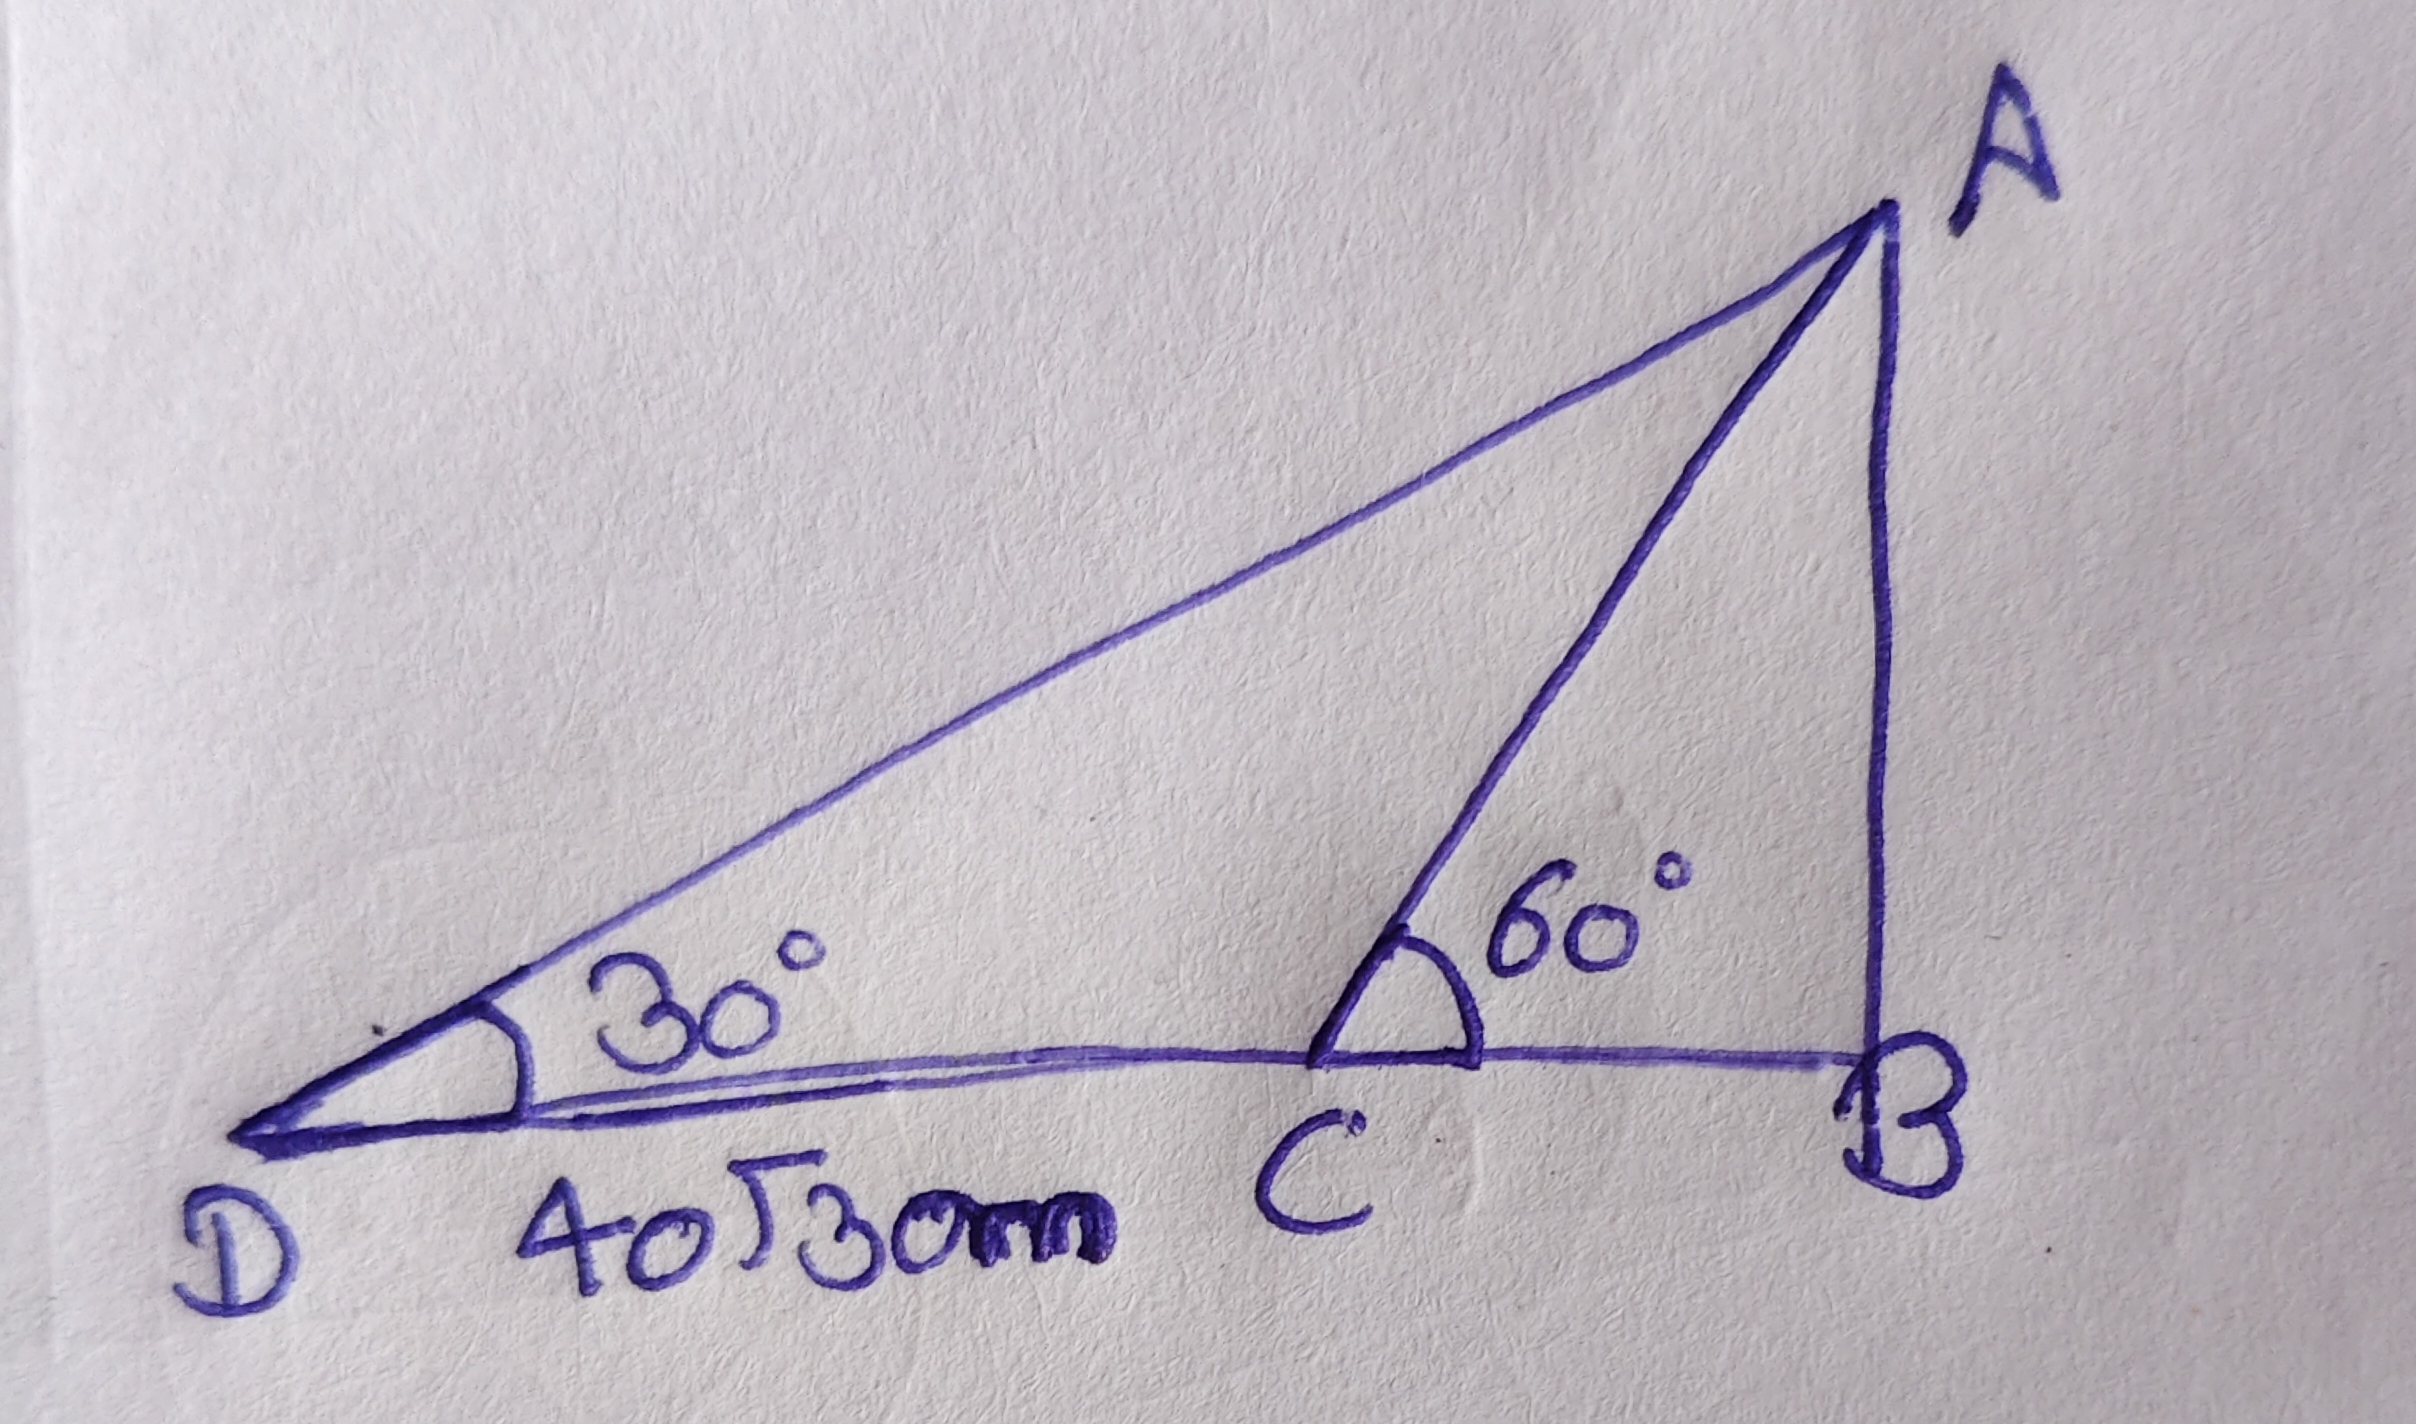 A
60°
30°
D
40√3
C
B